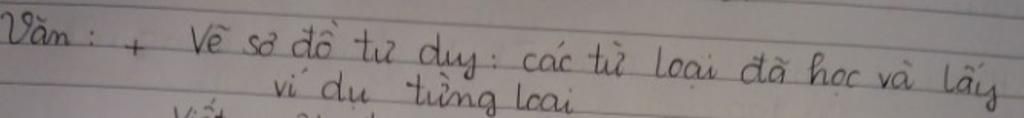 Văn: + Vẽ sơ đồ tư duy: các từ loại đã học và lấy
ví dụ từng loại